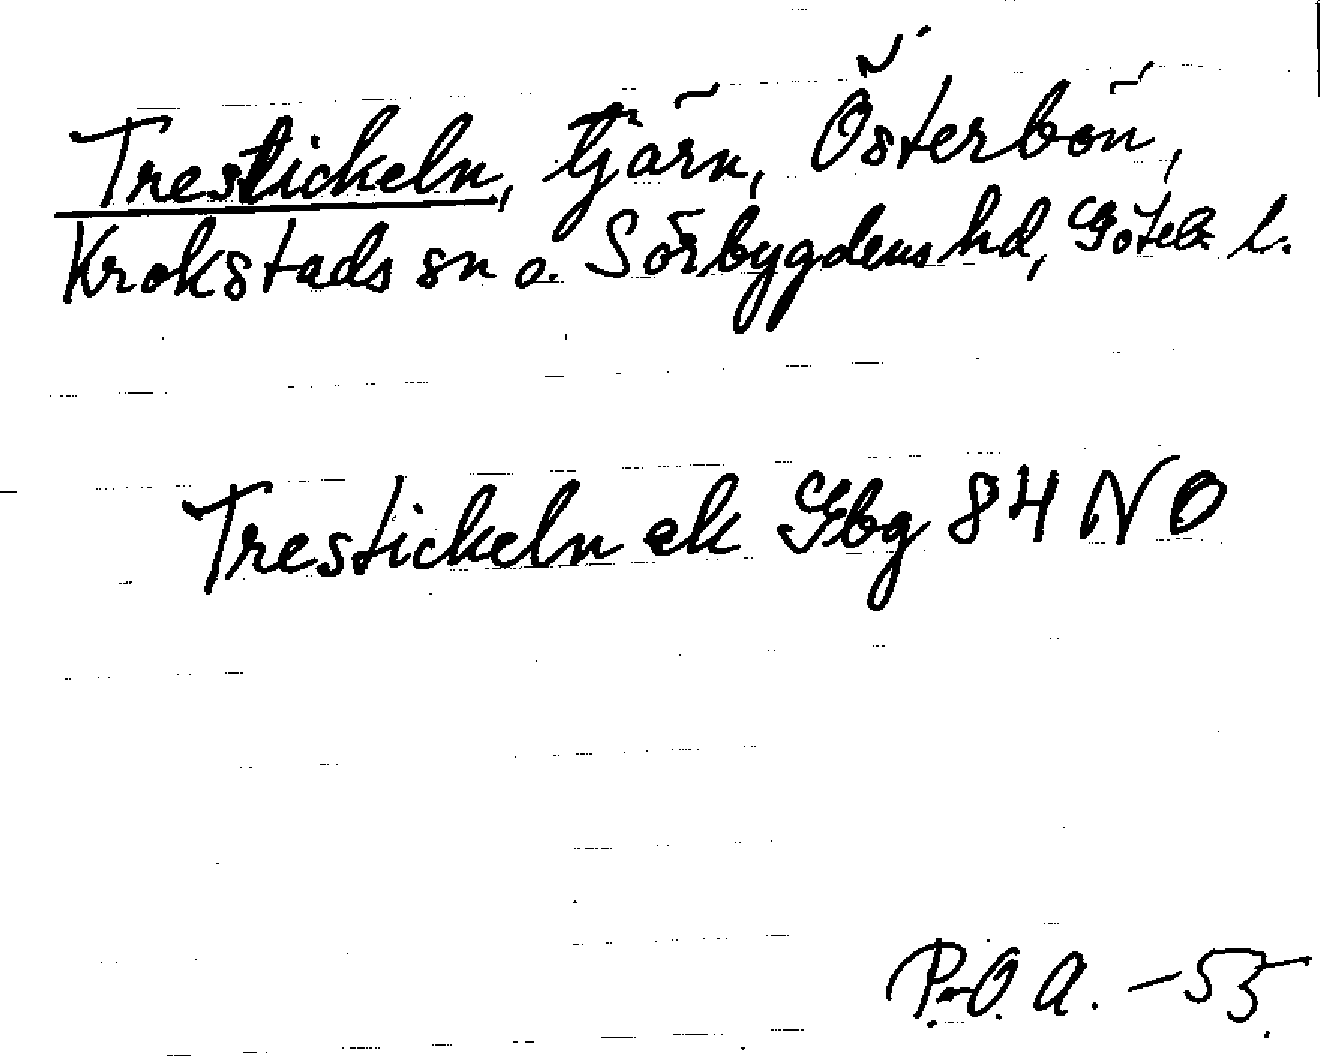 Trestickeln, tjärn, Österbön,
Krokstads sn o. Sörbygdens hd, Göteb. l.
Trestickeln ek Gbg 84 NO
P.-O. A. -55.